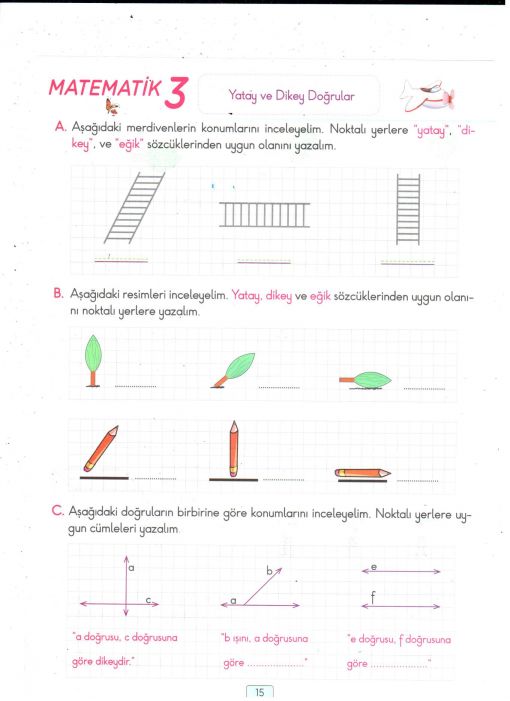 MATEMATİK 3
Yatay ve Dikey Doğrular
A. Aşağıdaki merdivenlerin konumlarını inceleyelim. Noktalı yerlere "yatay", "di-
key", ve "eğik" sözcüklerinden uygun olanını yazalım.
B. Aşağıdaki resimleri inceleyelim. Yatay, dikey ve eğik sözcüklerinden uygun olanı-
nı noktalı yerlere yazalım.
C. Aşağıdaki doğruların birbirine göre konumlarını inceleyelim. Noktalı yerlere uy-
gun cümleleri yazalım.
a
c
b
a
e
f
"a doğrusu, c doğrusuna
göre dikeydir."
"b ışını, a doğrusuna
göre ................."
"e doğrusu, f doğrusuna
göre ................."
15